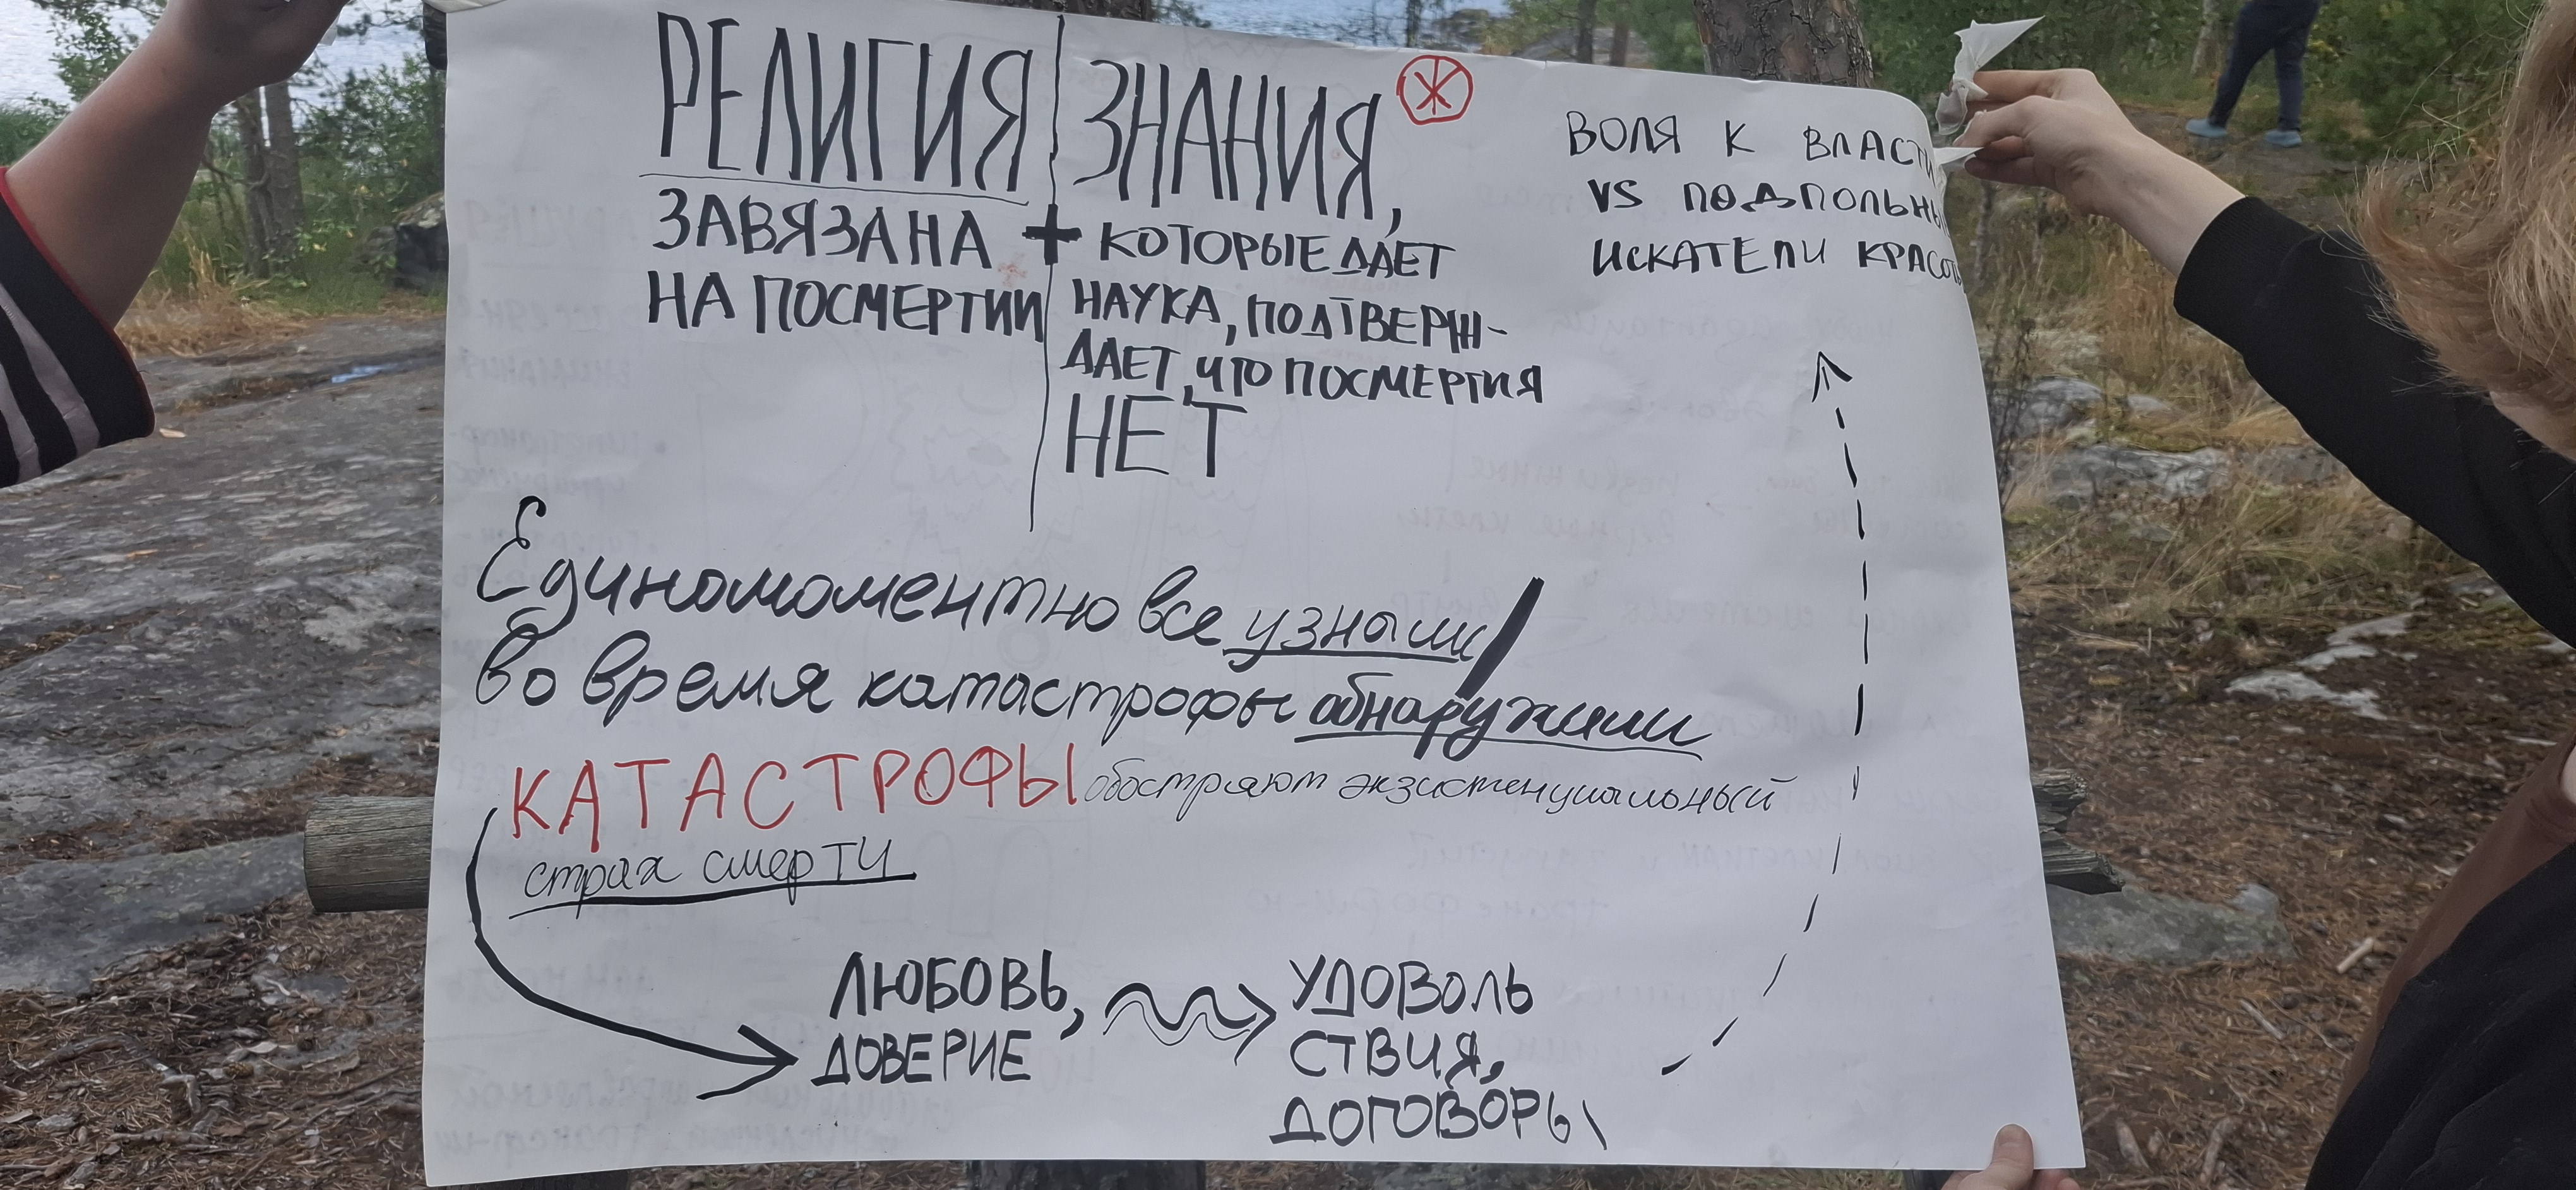 РЕЛИГИЯ
ЗАВЯЗАНА
НА ПОСМЕРТИИ
+
ЗНАНИЯ,
КОТОРЫЕ ДАЕТ
НАУКА, ПОДТВЕРЖ-
ДАЕТ, ЧТО ПОСМЕРТИЯ
НЕТ
Ж
ВОЛЯ К ВЛАСТИ
VS ПОДПОЛЬНЫ
ИСКАТЕЛИ КРАСОТЫ
Единомоментно все узнали /
во время катастрофы обнаружили
КАТАСТРОФЫ обостряют экзистенциальный
страх смерти
ЛЮБОВЬ,
ДОВЕРИЕ
УДОВОЛЬ
СТВИЯ,
ДОГОВОРЫ